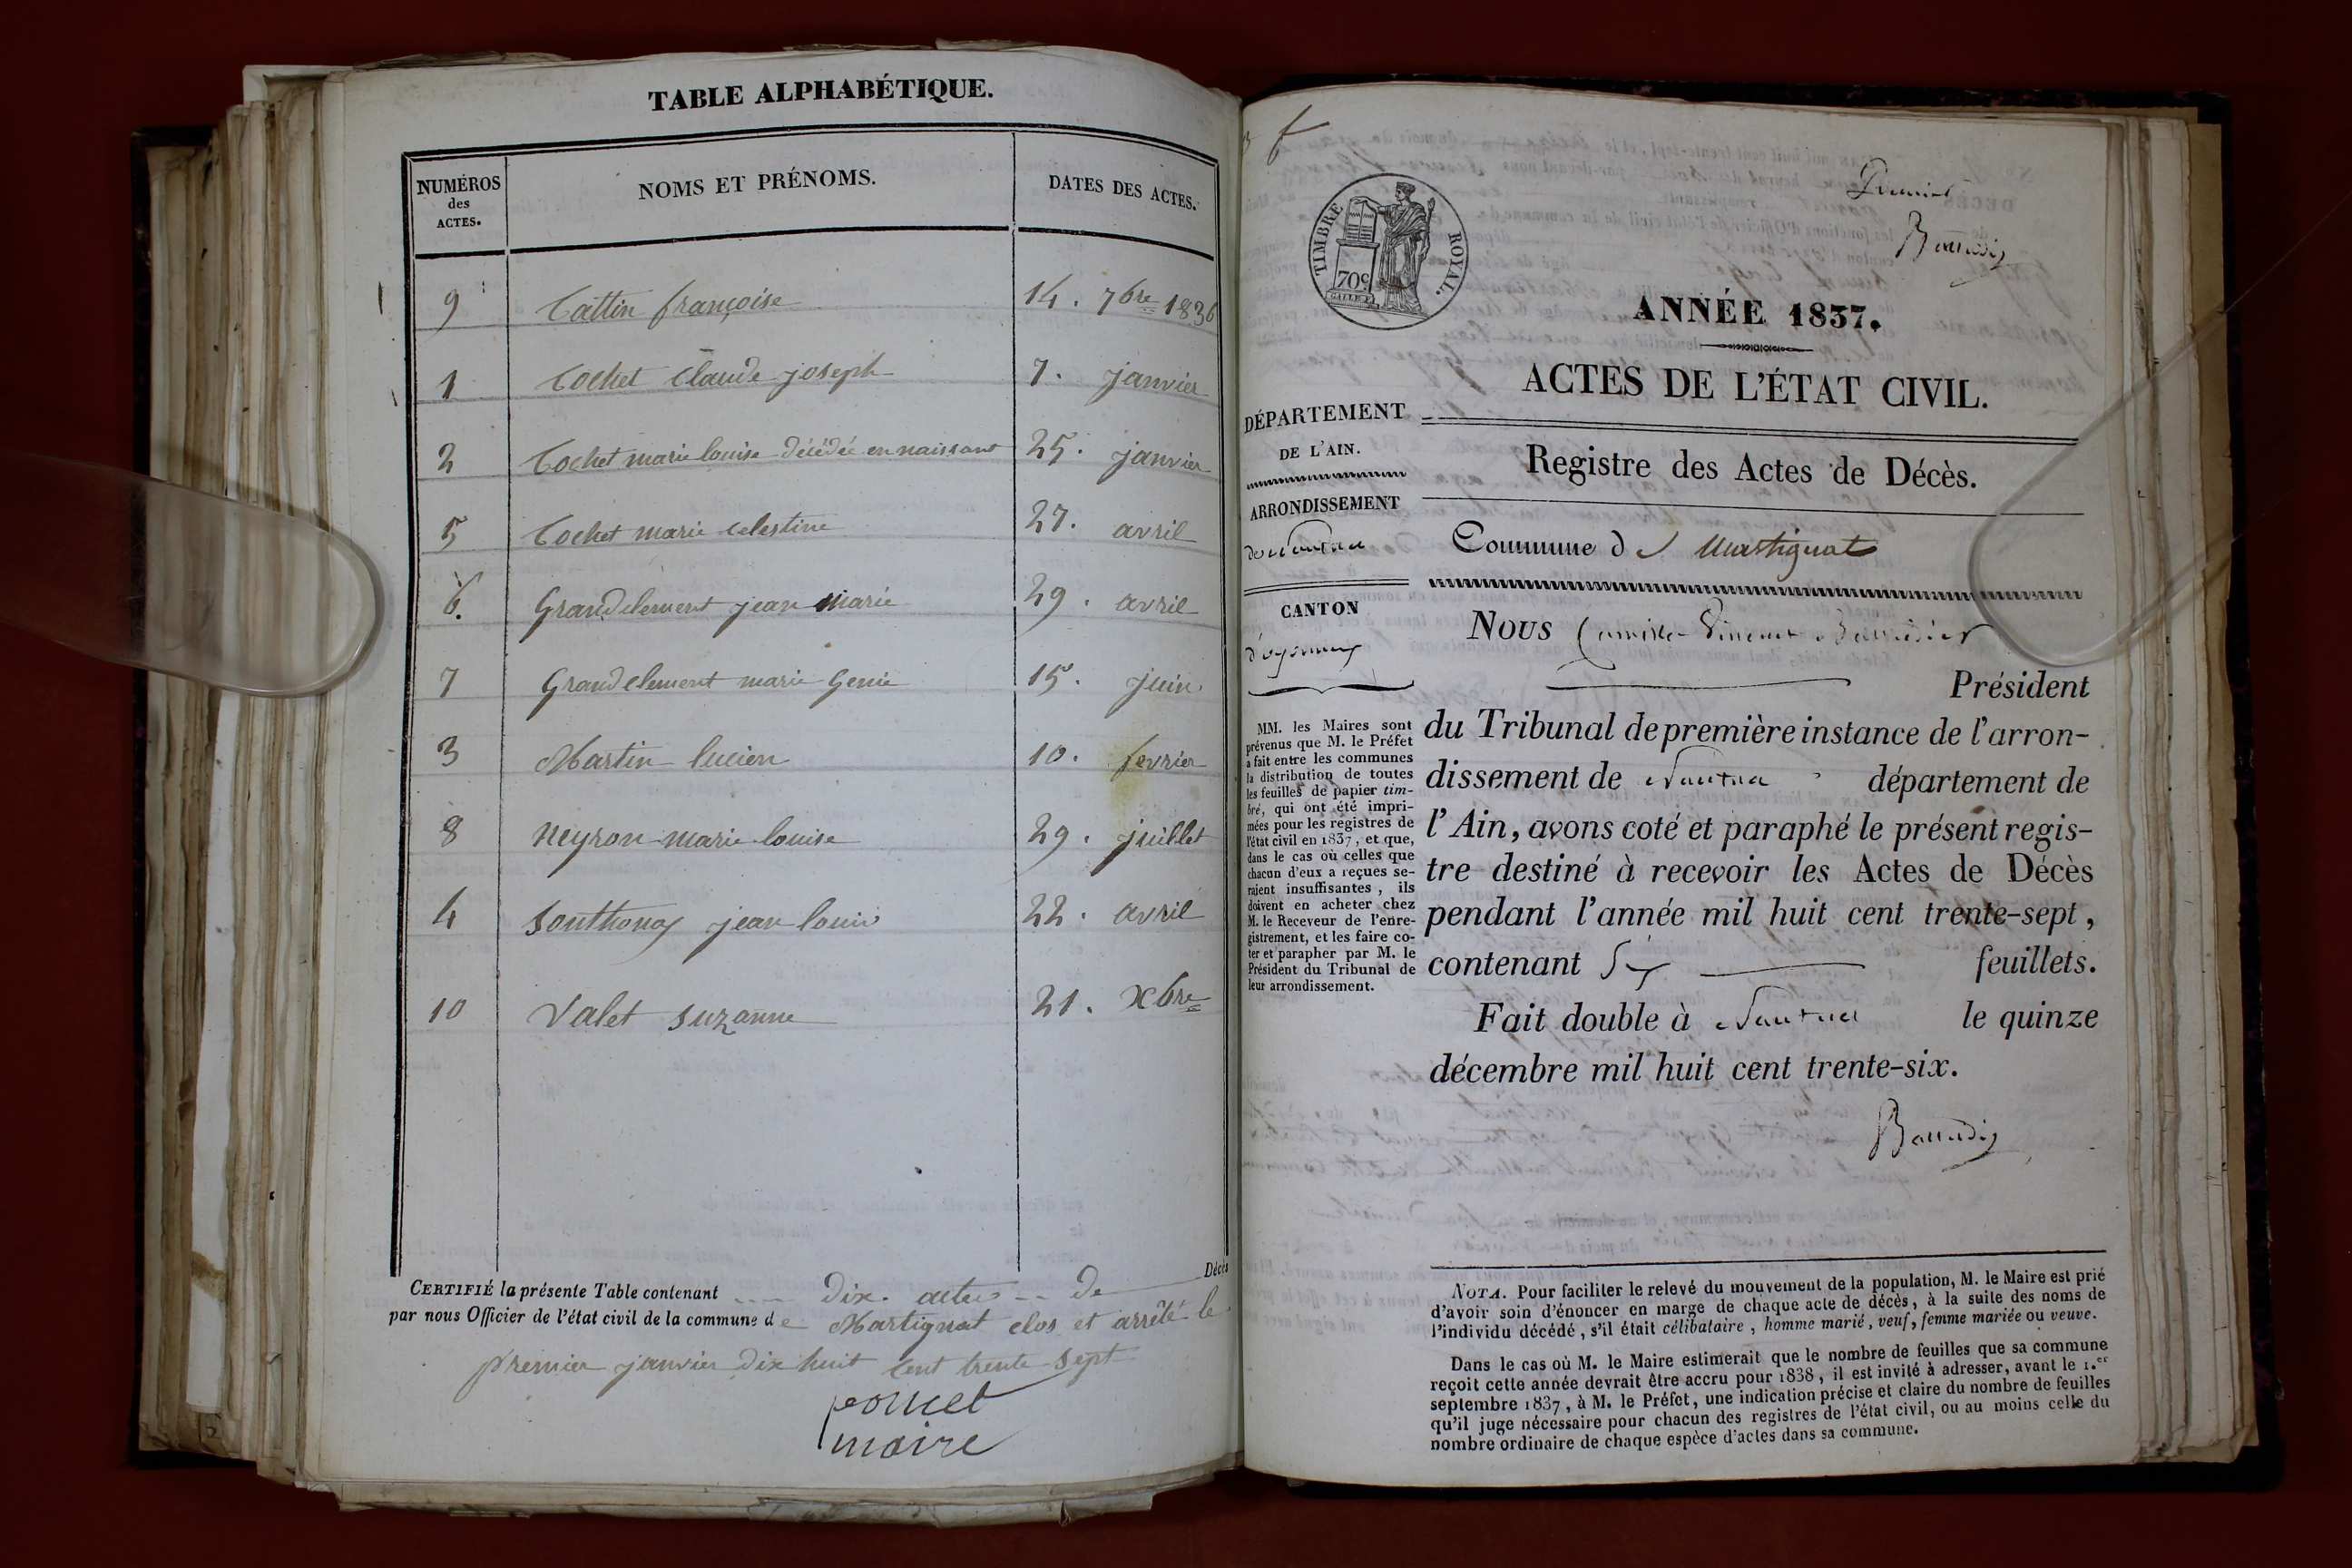 TABLE ALPHABÉTIQUE.
NUMÉROS des ACTES. NOMS ET PRÉNOMS. DATES DES ACTES.
9 Cattin françoise 14. 7bre 1836
1 Cochet Claude joseph 7. janvier
2 Cochet marie louise décédée en naissant 25. janvier
5 Cochet marie celestine 27. avril
6. Grandclement jean marie 29. avril
7 Grandclement marie Genie 15. juin
3 Martin lucien 10. fevrier
8 Neyron marie louise 29. juillet
4 Sonthonax jean louis 22. avril
10 Valet suzanne 21. Xbre
CERTIFIÉ la présente Table contenant dix actes de Décès
par nous Officier de l'état civil de la commune de Martignat clos et arrêté le
premier janvier dix huit cent trente sept
poncet
maire
TIMBRE ROYAL.
70c
Premier
ANNÉE 1837.
ACTES DE L'ÉTAT CIVIL.
DÉPARTEMENT
DE L'AIN.
ARRONDISSEMENT
de Nantua
CANTON
d'oyonnax
MM. les Maires sont
prévenus que M. le Préfet
a fait entre les communes
la distribution de toutes
les feuilles de papier tim-
bré, qui ont été impri-
mées pour les registres de
l'état civil en 1837, et que,
dans le cas où celles que
chacun d'eux a reçues se-
raient insuffisantes, ils
doivent en acheter chez
M. le Receveur de l'enre-
gistrement, et les faire co-
ter et parapher par M. le
Président du Tribunal de
leur arrondissement.
Registre des Actes de Décès.
Commune de Martignat
NOUS Camille Vincent
Président
du Tribunal de première instance de l'arron-
dissement de Nantua département de
l'Ain, avons coté et paraphé le présent regis-
tre destiné à recevoir les Actes de Décès
pendant l'année mil huit cent trente-sept,
contenant Six feuillets.
Fait double à Nantua le quinze
décembre mil huit cent trente-six.
NOTA. Pour faciliter le relevé du mouvement de la population, M. le Maire est prié
d'avoir soin d'énoncer en marge de chaque acte de décès, à la suite des noms de
l'individu décédé, s'il était célibataire, homme marié, veuf, femme mariée ou veuve.
Dans le cas où M. le Maire estimerait que le nombre de feuilles que sa commune
reçoit cette année devrait être accru pour 1838, il est invité à adresser, avant le 1.er
septembre 1837, à M. le Préfet, une indication précise et claire du nombre de feuilles
qu'il juge nécessaire pour chacun des registres de l'état civil, ou au moins celle du
nombre ordinaire de chaque espèce d'actes dans sa commune.